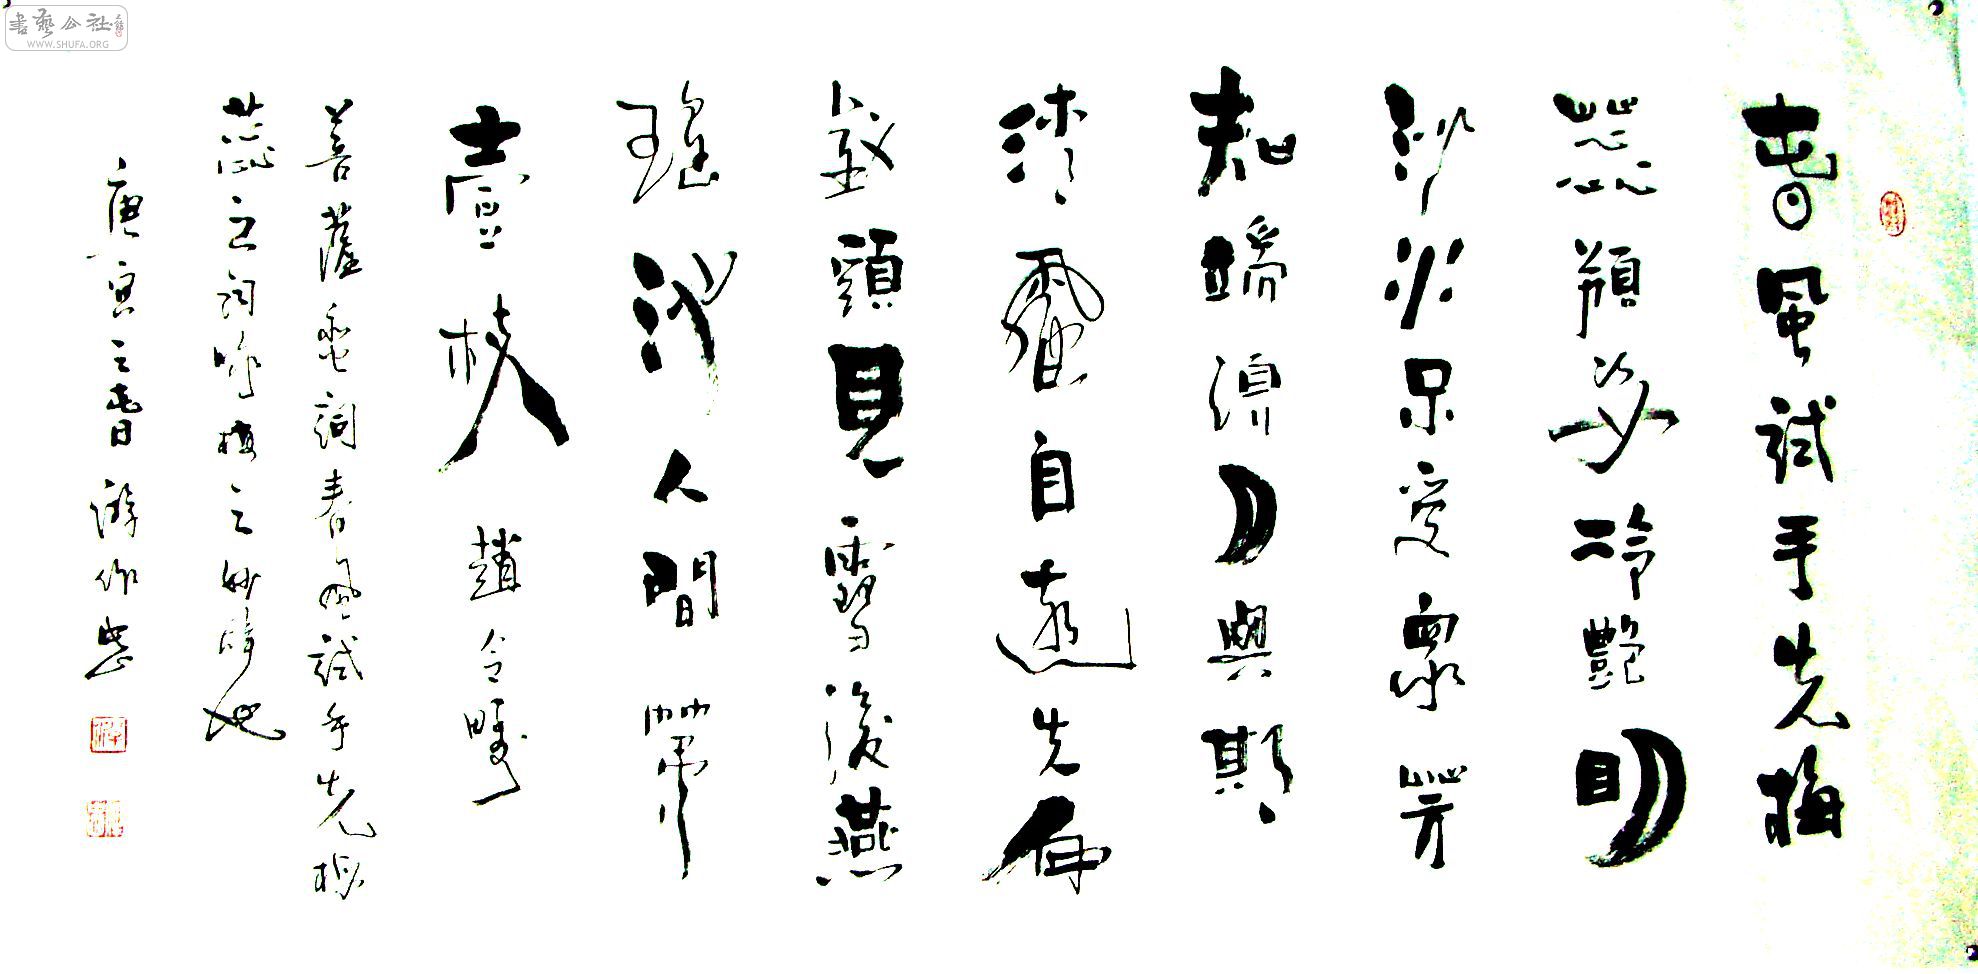 書藝公社
WWW.SHUFA.ORG
春風試手先梅
蕊頩姿冷艷明
沙水不受眾芳
知端須月與期
清香自遠先向
釵頭見雪後燕
瑤池人間第
壹枝 趙令畤
菩薩蠻詞春風試手先梅
蕊之詞咏梅之妙時也
庚寅之春日